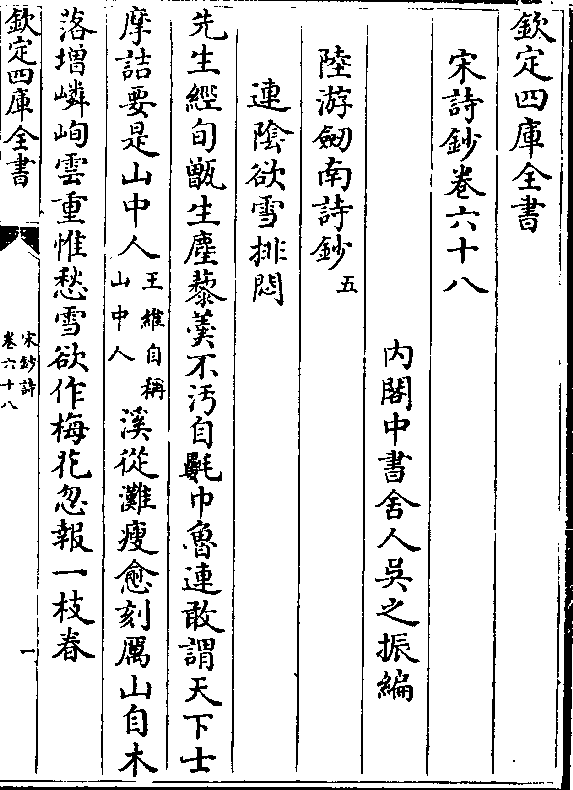 欽定四庫全書
宋詩鈔卷六十八
內閣中書舍人吳之振編
陸游劒南詩鈔五
連陰欲雪排悶
先生經旬甑生塵藜羮不污自𣯶巾魯連敢謂天下士
摩詰要是山中人王維自稱山中人溪從灘瘦愈刻厲山自木
落增嶙峋雲重惟愁雪欲作梅花忽報一枝春
欽定四庫全書
宋詩鈔
卷六十八
一